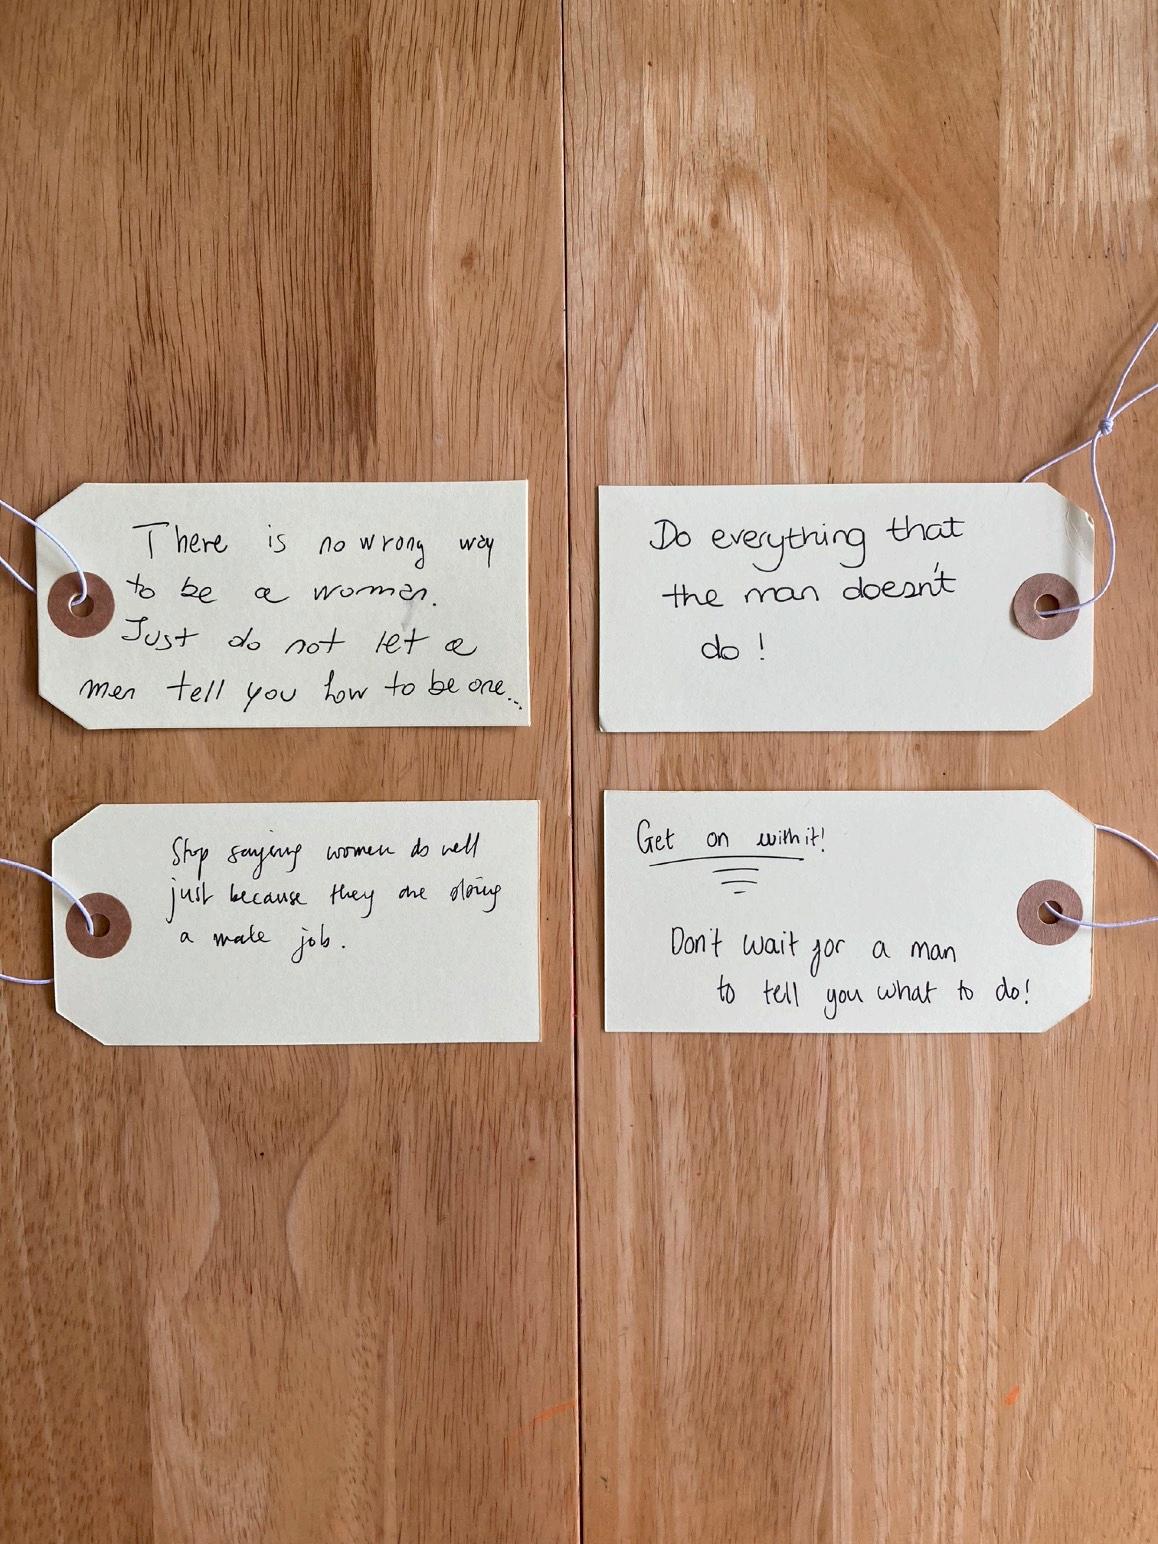 There is no wrong way
to be a woman.
Just do not let a
men tell you how to be one...
Do everything that
the man doesn't
do!
Stop saying women do well
just because they are doing
a male job.
Get on with it!
Don't wait for a man
to tell you what to do!